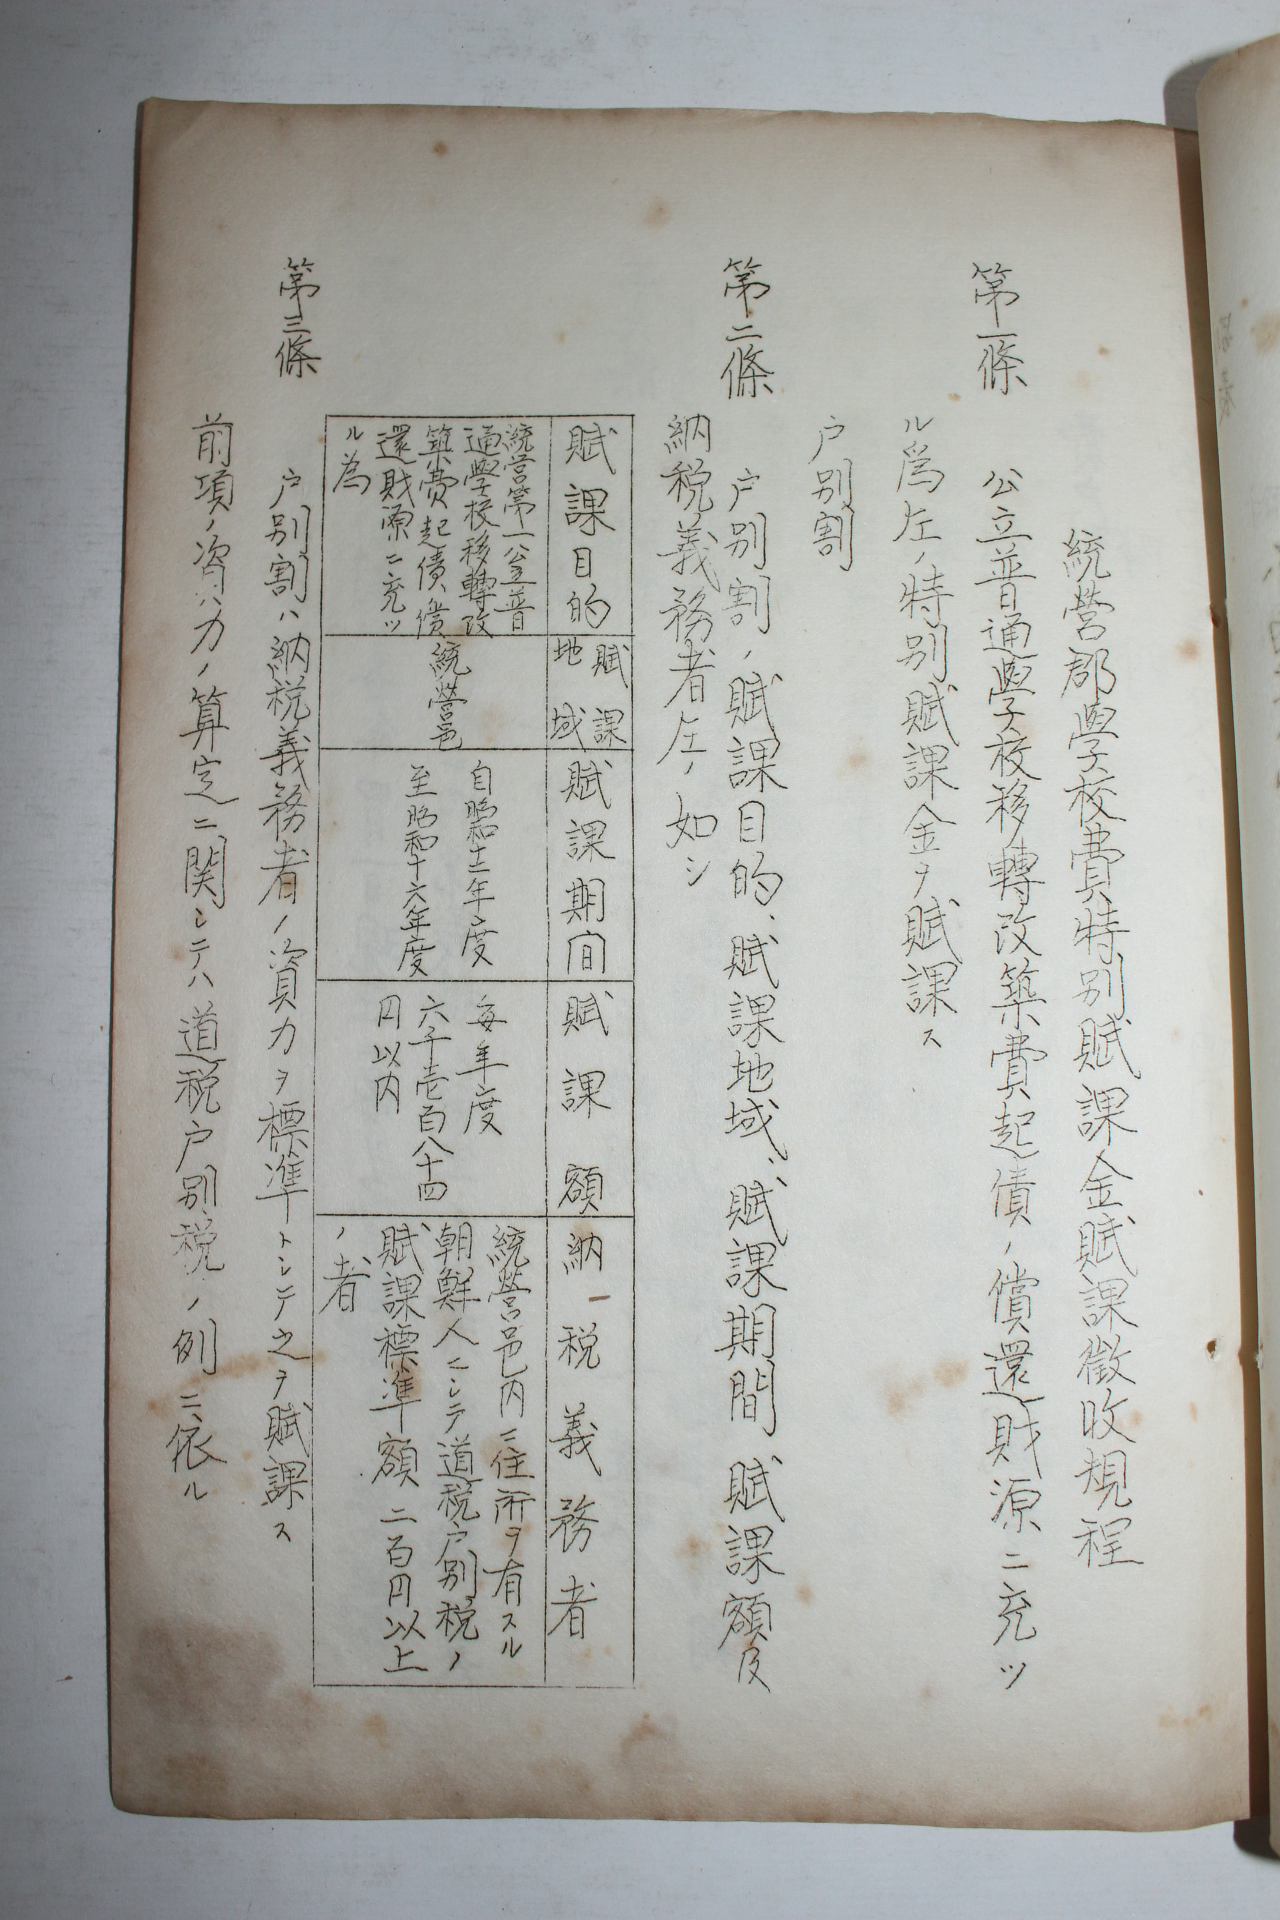 統營郡學校費特別賦課金賦課徵收規程
第一條　公立普通學校移轉改築費起債ノ償還財源ニ充ツ
ル爲左ノ特別賦課金ヲ賦課ス
戸別割
第二條　戸別割ノ賦課目的、賦課地域、賦課期間賦課額及
納税義務者左ノ如シ
賦課目的
賦課
地域
賦課期间
賦課額
納税義務者
統営第一公立普
通學校移轉改
築費起債償
還財源ニ充ツ
ル為
統營邑
自昭和十二年度
至昭和十六年度
每年度
六千壱百八十四
円以内
統營邑内ニ住所ヲ有スル
朝鮮人ニシテ道税戸別税ノ
賦課標準額二百円以上
ノ者
第三條　戸別割ハ納税義務者ノ資力ヲ標準トシテ之ヲ賦課ス
前項ノ資力ノ算定ニ関シテハ道税戸別税ノ例ニ依ル